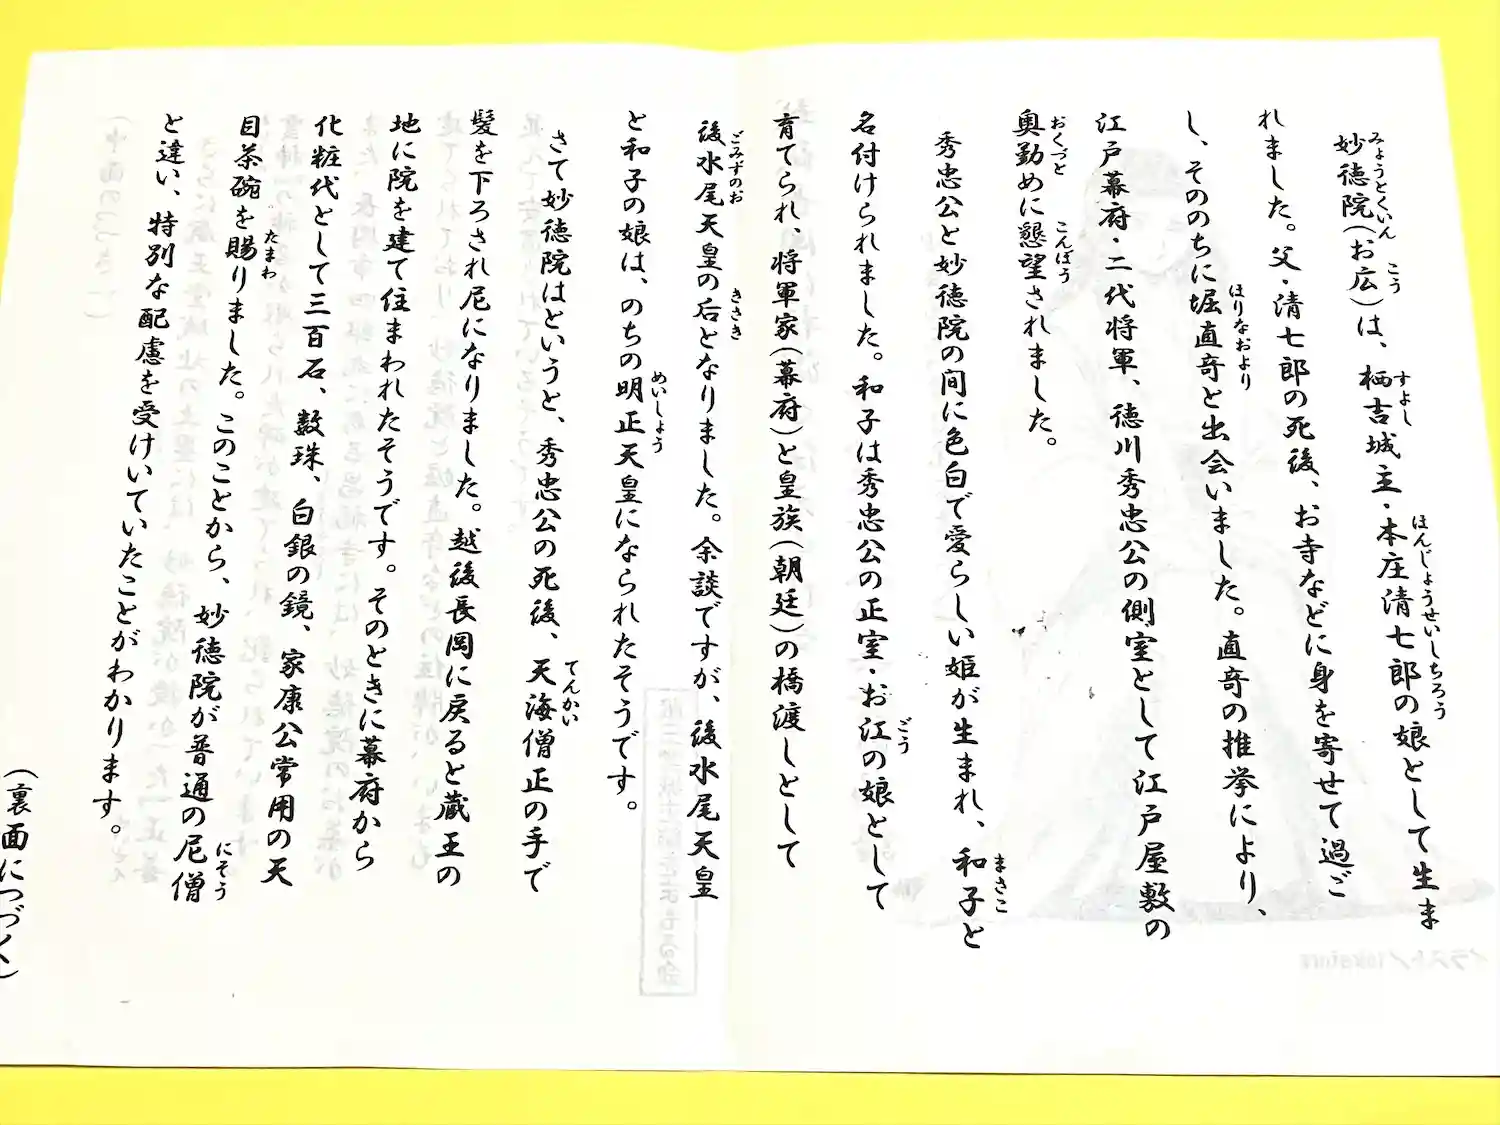 妙徳院(お広)は、栖吉城主・本庄清七郎の娘として生ま
みょうとくいん こう すよし ほんじょうせいしちろう
れました。父・清七郎の死後、お寺などに身を寄せて過ご
し、そののちに堀直竒と出会いました。直竒の推挙により、
ほりなおより
江戸幕府・二代将軍、徳川秀忠公の側室として江戸屋敷の
奥勤めに懇望されました。
おくづと こんぼう
秀忠公と妙徳院の間に色白で愛らしい姫が生まれ、和子と
まさこ
名付けられました。和子は秀忠公の正室・お江の娘として
ごう
育てられ、将軍家(幕府)と皇族(朝廷)の橋渡しとして
後水尾天皇の后となりました。余談ですが、後水尾天皇
ごみずのお きさき
と和子の娘は、のちの明正天皇になられたそうです。
めいしょう
さて妙徳院はというと、秀忠公の死後、天海僧正の手で
てんかい
髪を下ろされ尼になりました。越後長岡に戻ると蔵王の
地に院を建て住まわれたそうです。そのときに幕府から
化粧代として三百石、数珠、白銀の鏡、家康公常用の天
目茶碗を賜りました。このことから、妙徳院が普通の尼僧
たまわ にそう
と違い、特別な配慮を受けいていたことがわかります。
(裏面につづく)